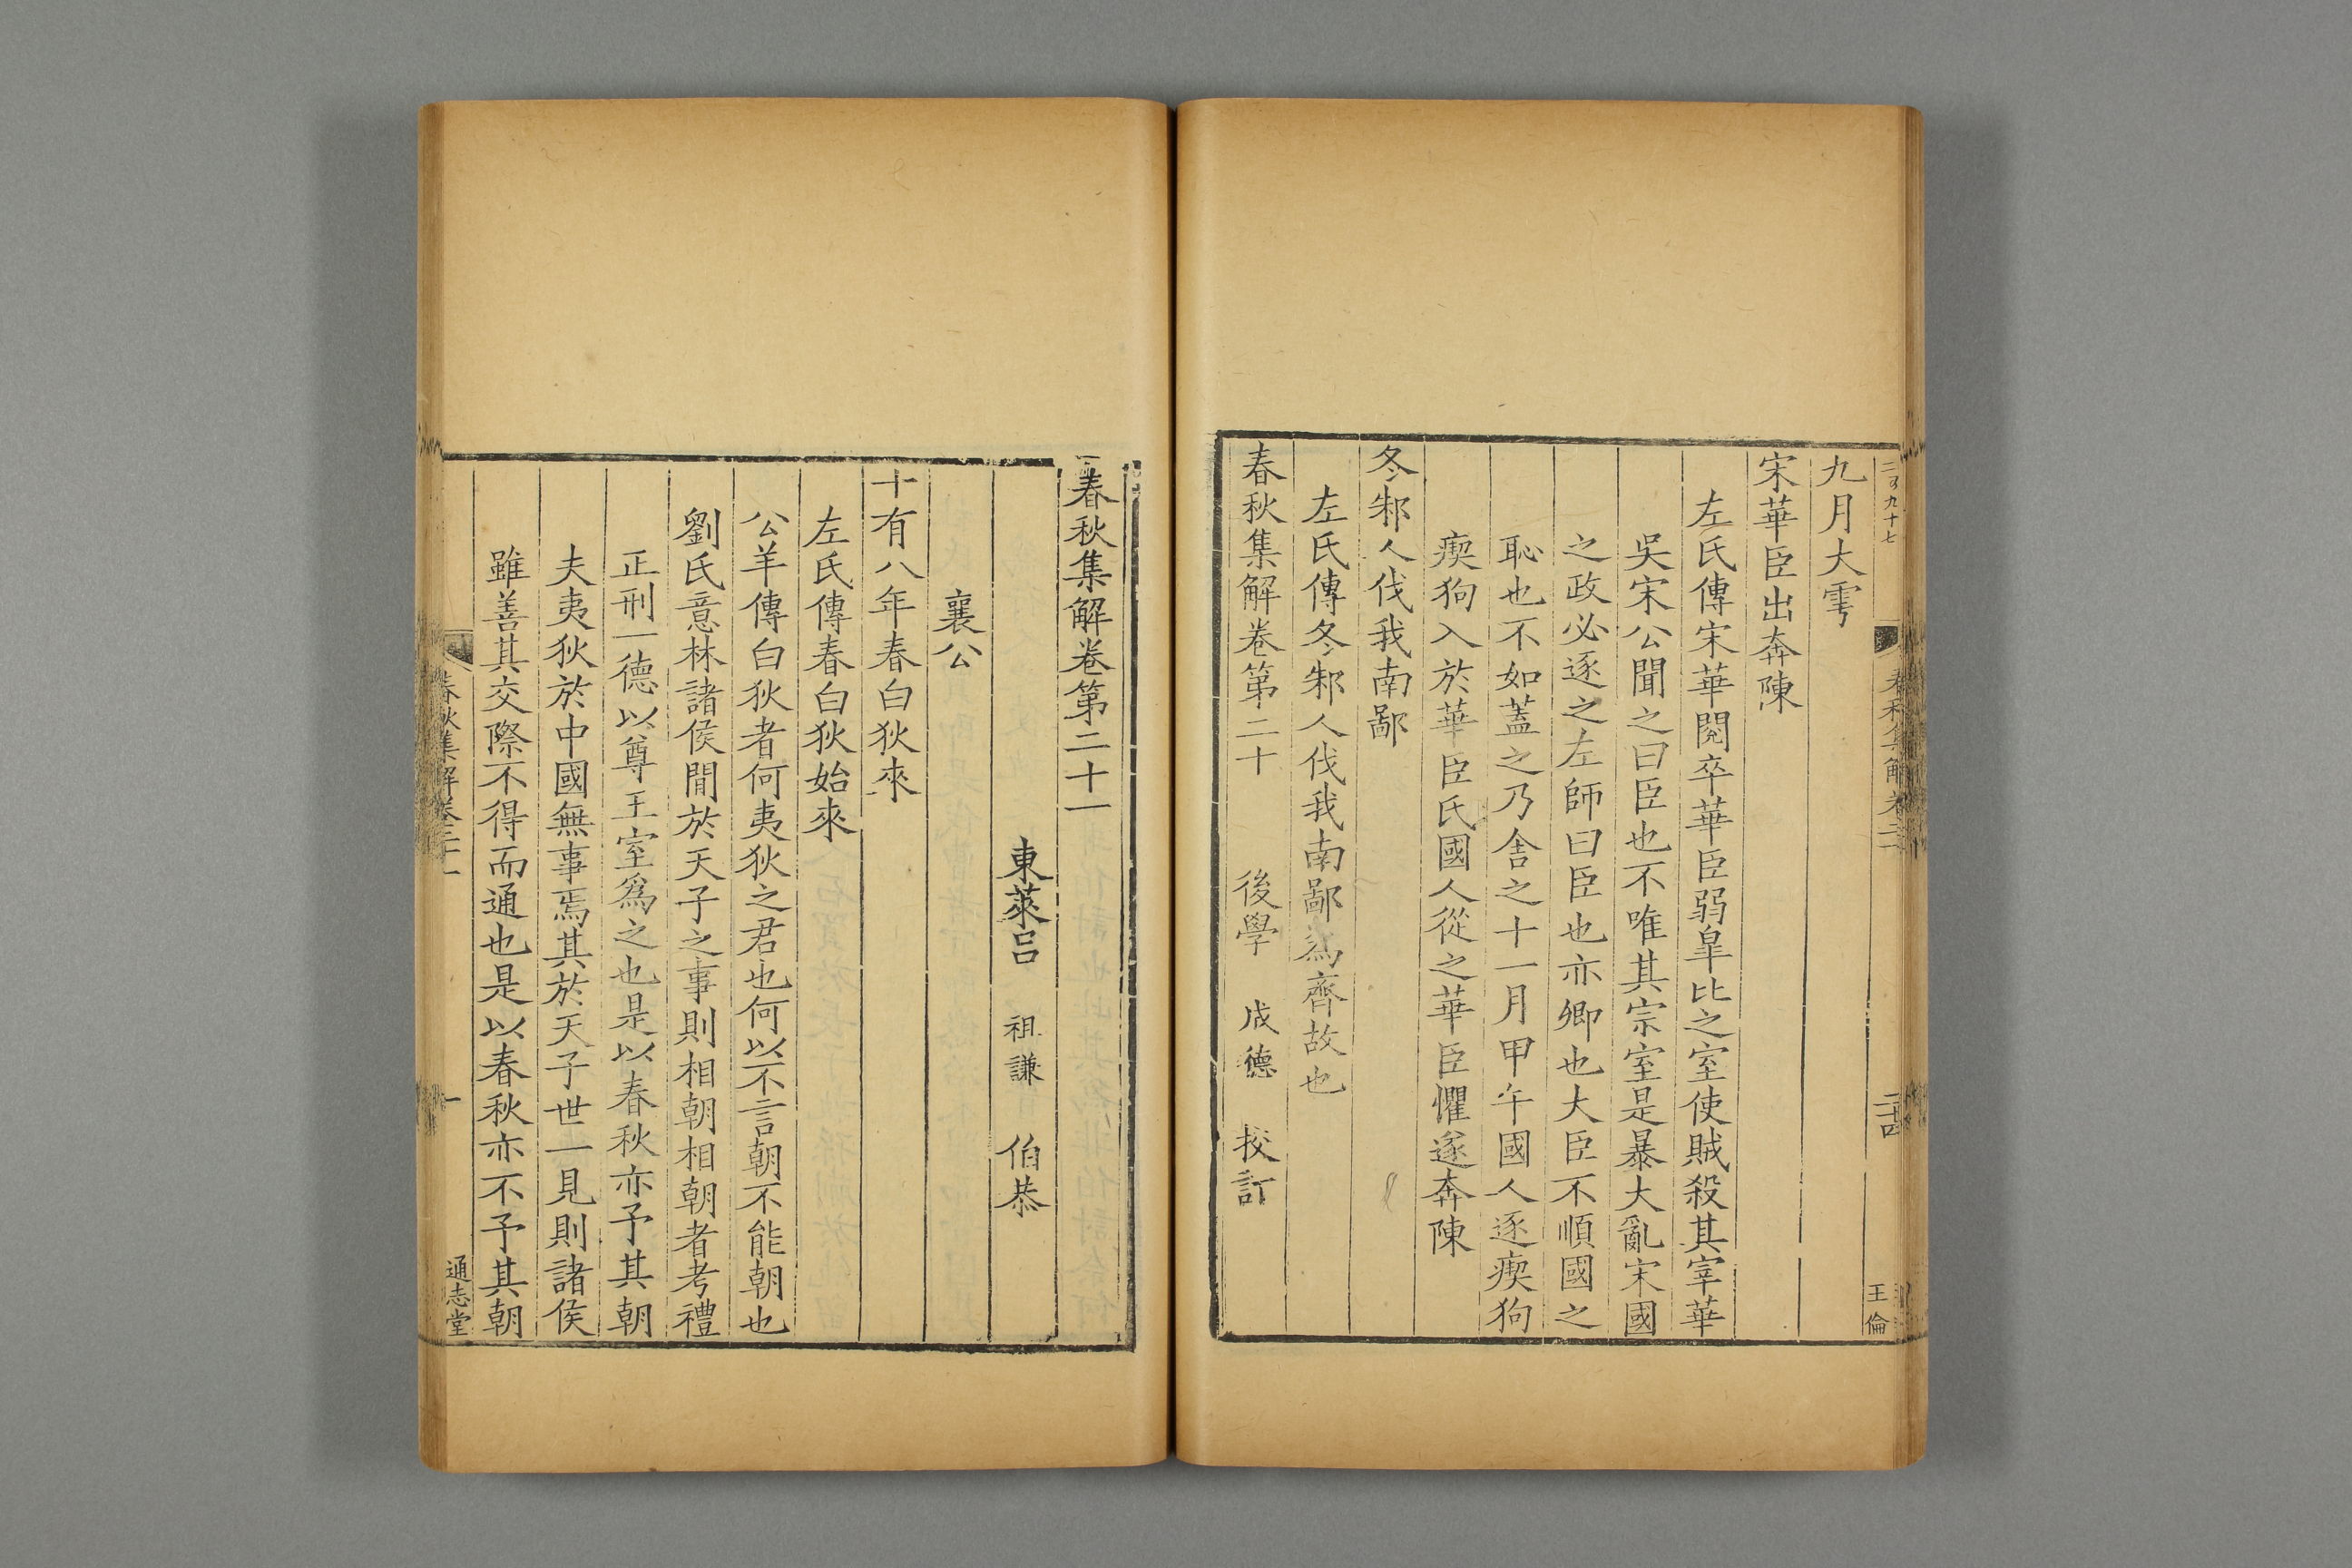 九月大雩
宋華臣出奔陳
左氏傳宋華閱卒華臣弱臯比之室使賊殺其宰華
吳宋公聞之曰臣也不唯其宗室是暴大亂宋國
之政必逐之左師曰臣也亦卿也大臣不順國之
恥也不如蓋之乃舍之十一月甲午國人逐瘈狗
瘈狗入於華臣氏國人從之華臣懼遂奔陳
冬邾人伐我南鄙
左氏傳冬邾人伐我南鄙為齊故也
春秋集解卷第二十 後學 成德 挍訂
王倫
春秋集解卷第二十一
東萊呂 祖謙 伯恭
襄公
十有八年春白狄來
左氏傳春白狄始來
公羊傳白狄者何夷狄之君也何以不言朝不能朝也
劉氏意林諸侯閒於天子之事則相朝相朝者考禮
正刑一德以尊王室爲之也是以春秋亦予其朝
夫夷狄於中國無事焉其於天子世一見則諸侯
雖善其交際不得而通也是以春秋亦不予其朝
春秋集解卷二十一 一 通志堂